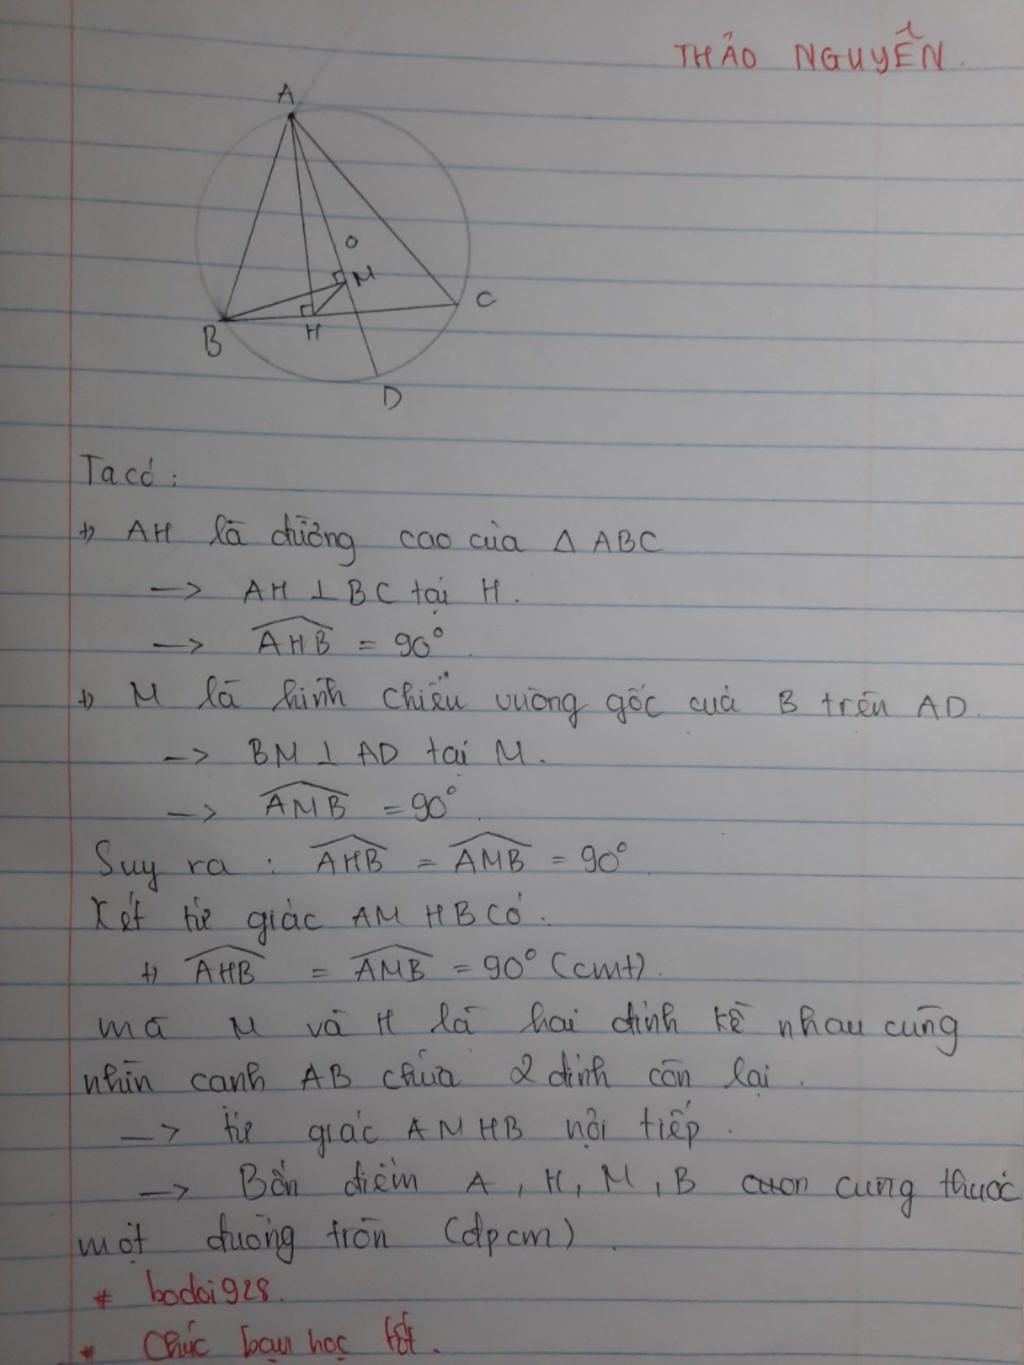 THẢO NGUYÊN.
A
O
M
C
B
H
D
Ta có :
+) AH là đường cao của Δ ABC
—> AH ⊥ BC tại H.
—> AHB = 90°.
+) M là hình chiếu vuông góc của B trên AD.
—> BM ⊥ AD tại M.
—> AMB = 90°.
Suy ra : AHB = AMB = 90°
Xét tứ giác AMHB có.
+) AHB = AMB = 90° (cmt).
mà M và H là hai đỉnh kề nhau cùng
nhìn cạnh AB chứa 2 đỉnh còn lại.
—> tứ giác AMHB nội tiếp.
—> Bốn điểm A, H, M, B cùng thuộc
một đường tròn (đpcm).
* bodoi928.
* Chúc bạn học tốt.